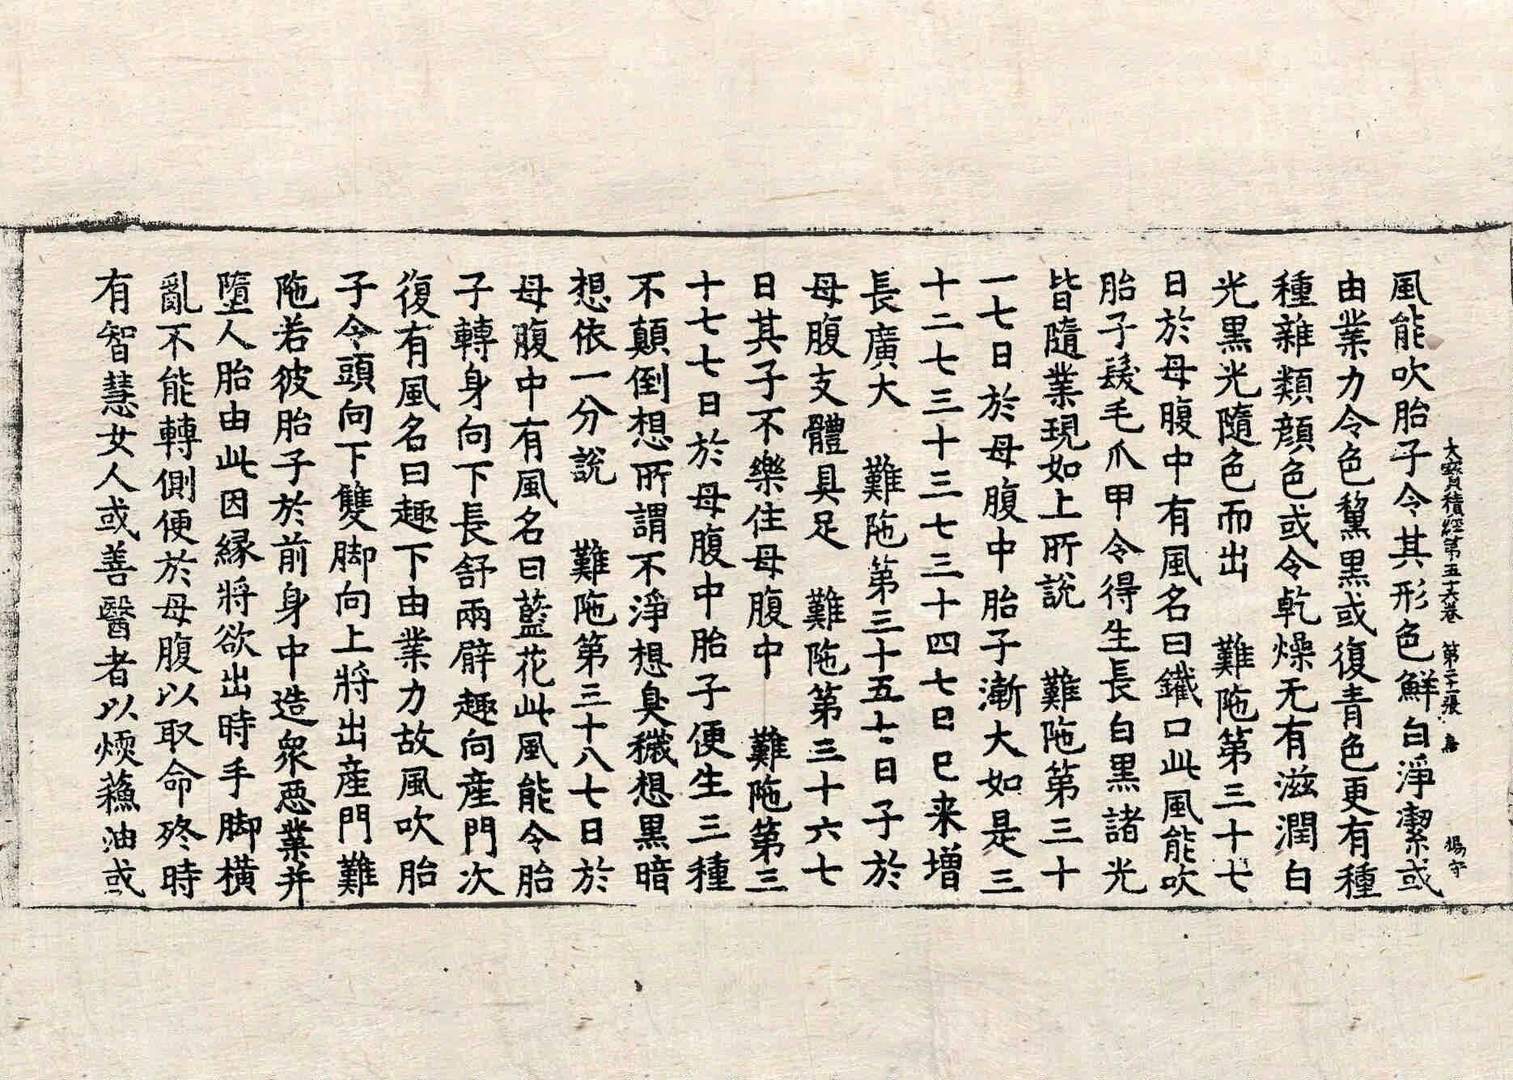 大寶積經第五十六卷 楊守
風能吹胎子令其形色鮮白淨潔或
由業力令色黧黑或復青色更有種
種雜類顔色或令乾燥无有滋潤白
光黑光隨色而出 難陁第三十七
日於母腹中有風名曰鐵口此風能吹
胎子髮毛爪甲令得生長白黑諸光
皆隨業現如上所說 難陁第三十
一七日於母腹中胎子漸大如是三
十二七三十三七三十四七日已来增
長廣大 難陁第三十五七日子於
母腹支體具足 難陁第三十六七
日其子不樂住母腹中 難陁第三
十七七日於母腹中胎子便生三種
不顛倒想所謂不淨想臭穢想黑暗
想依一分說 難陁第三十八七日於
母腹中有風名曰藍花此風能令胎
子轉身向下長舒兩臂趣向産門次
復有風名曰趣下由業力故風吹胎
子令頭向下雙脚向上將出産門難
陁若彼胎子於前身中造衆惡業并
墮人胎由此因縁將欲出時手脚橫
亂不能轉側便於母腹以取命終時
有智慧女人或善醫者以煗蘓油或